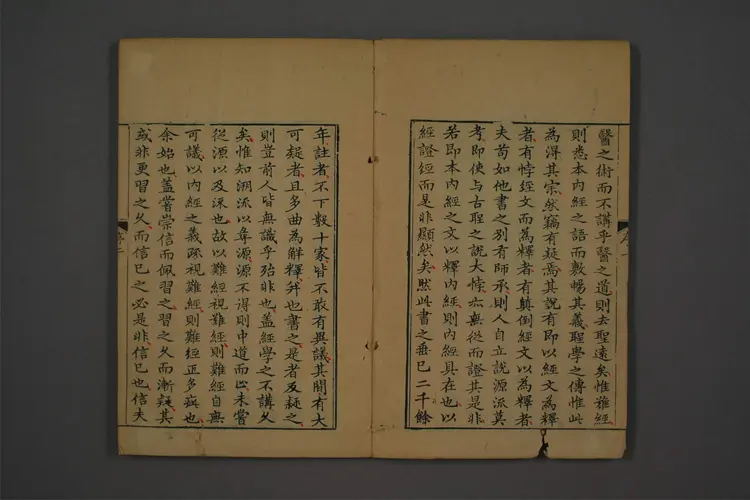 醫之術而不講乎醫之道則去聖遠矣惟難經
則悉本內經之語而敷暢其義聖學之傳惟此
為得其宗然竊有疑焉其說有即以經文為釋
者有悖經文而為釋者有顛倒經文以為釋者
夫苟如他書之別有師承則人自立說源流莫
考即使與古聖之說大悖亦無從而證其是非
若即本內經之文以釋內經則內經具在也以
經證經而是非顯然矣然此書之垂已二千餘
年註者不下數十家皆不敢有異議其間有大
可疑者且多曲為解釋并他書之是者反疑之
則豈前人皆無識乎殆非也蓋經學之不講久
矣惟知溯流以尋源源不得則中道而止未嘗
從源以及流也故以難經視難經則難經自無
可議以內經之義疏視難經則難經正多疵也
余始也蓋嘗崇信而佩習之習之久而漸疑其
或非更習之久而信已之必是非信已也信夫